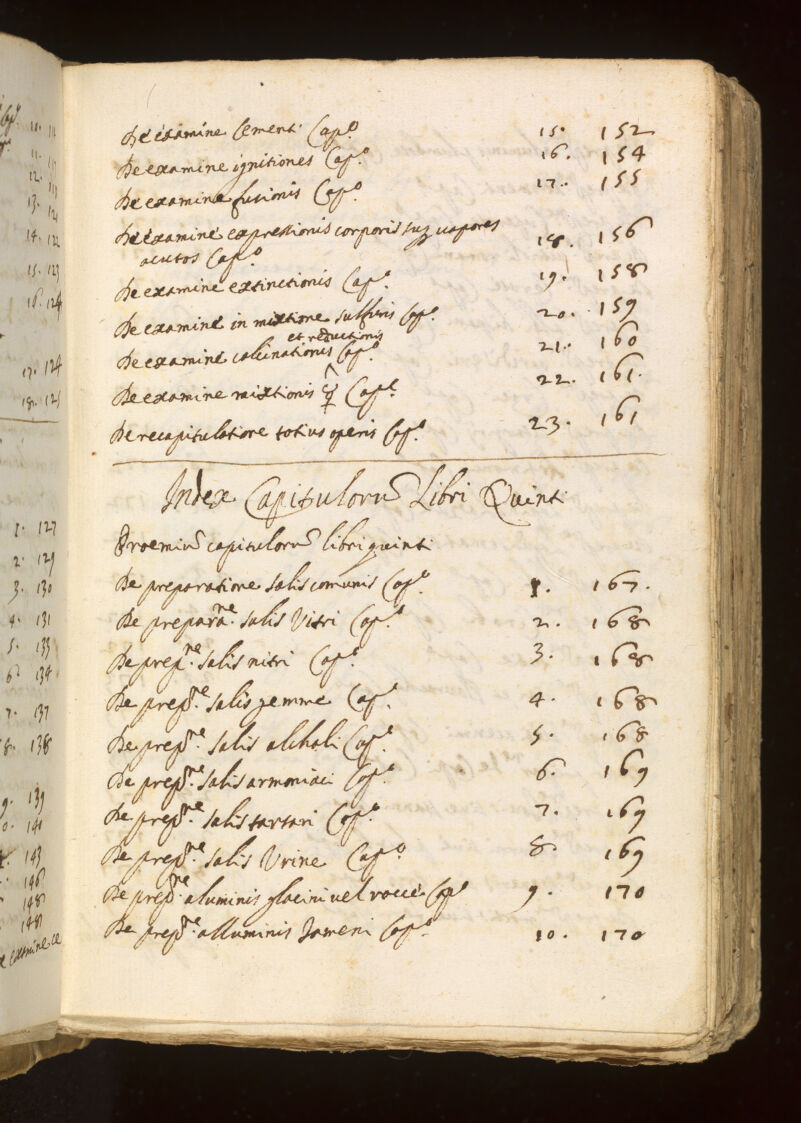 De examine Cementi Cap.º 15. 152
De examine ignitiones Cap.º 16. 154
De examine fusionis Cap.º 17. 155
De examine expressionis corporis sup vapores
acutos Cap.º 18. 156
De examine extinctionis Cap.º 19. 158
De examine in mixtione sulfuris Cap.º 20. 159
et reductionis
De examine calcinationis Cap.º 21. 160
De examine mixtionis ☿ Cap.º 22. 161.
De recapitulatione totius operis Cap.º 23. 161
Index Capitulorū Libri Quinti
Proemiū capitulorū libri quinti
De preparatione salis comunis Cap.º 1. 167.
De prepara.ne salis Vitri Cap.º 2. 168
De prep.ne salis nitri Cap.º 3. 168
De prep.ne salis gemme Cap.º 4. 168
De prep.ne salis alchali Cap.º 5. 168
De prep.ne salis armoniaci Cap.º 6. 169
De prep.ne salis tartari Cap.º 7. 169
De prep.ne salis Urine Cap.º 8. 169
De prep.ne aluminis glacini vel rocce Cap.º 9. 170
De prep.ne alluminis Jameni Cap.º 10. 170